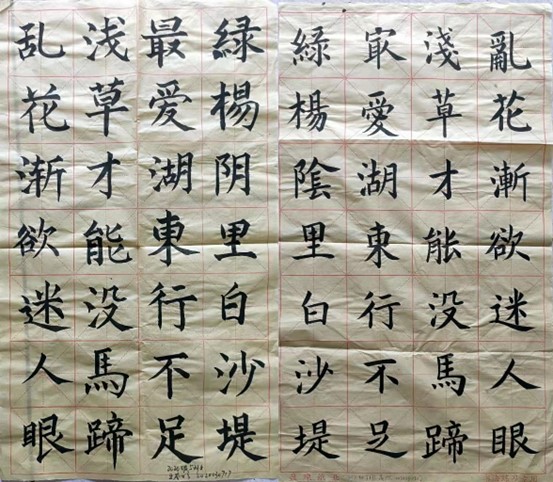 乱花渐欲迷人眼
浅草才能没馬蹄
最爱湖東行不足
緑楊阴里白沙堤
亂花漸欲迷人眼
淺草才能没馬蹄
㝡愛湖東行不足
緑楊陰里白沙堤